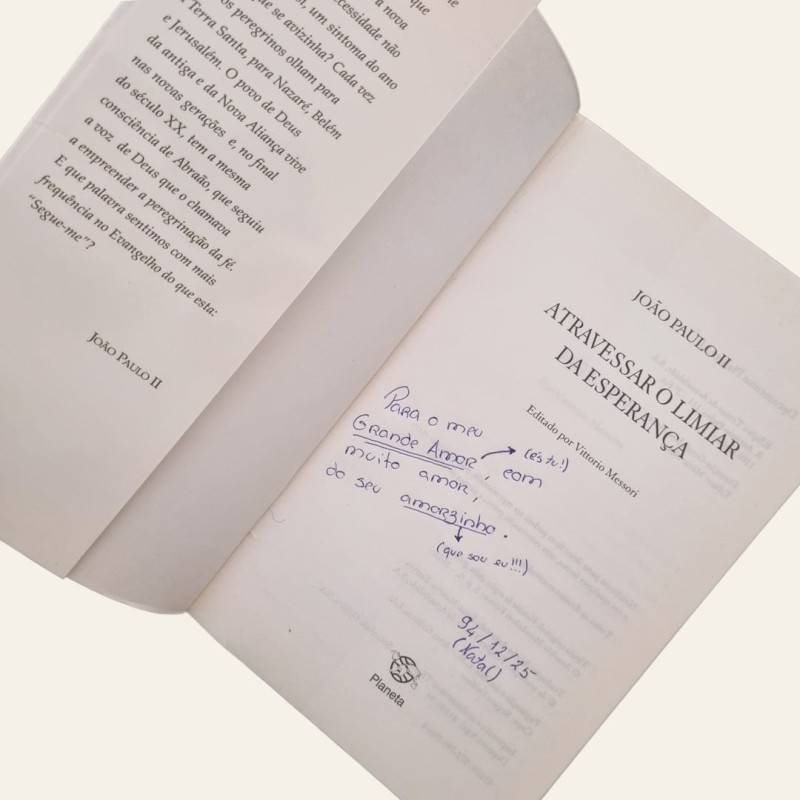 que
a nova
necessidade não
, um sintoma do ano
que se avizinha? Cada vez
os peregrinos olham para
Terra Santa, para Nazaré, Belém
e Jerusalém. O povo de Deus
da antiga e da Nova Aliança vive
nas novas gerações e, no final
do século XX, tem a mesma
consciência de Abraão, que seguiu
a voz de Deus que o chamava
a empreender a peregrinação da fé.
E que palavra sentimos com mais
frequência no Evangelho do que esta:
"Segue-me"?
JOÃO PAULO II
JOÃO PAULO II
ATRAVESSAR O LIMIAR
DA ESPERANÇA
Editado por Vittorio Messori
Para o meu
Grande Amor, com
(és tu!)
muito amor,
do seu amorzinho.
(que sou eu!!!)
94/12/25
(Natal)
Planeta